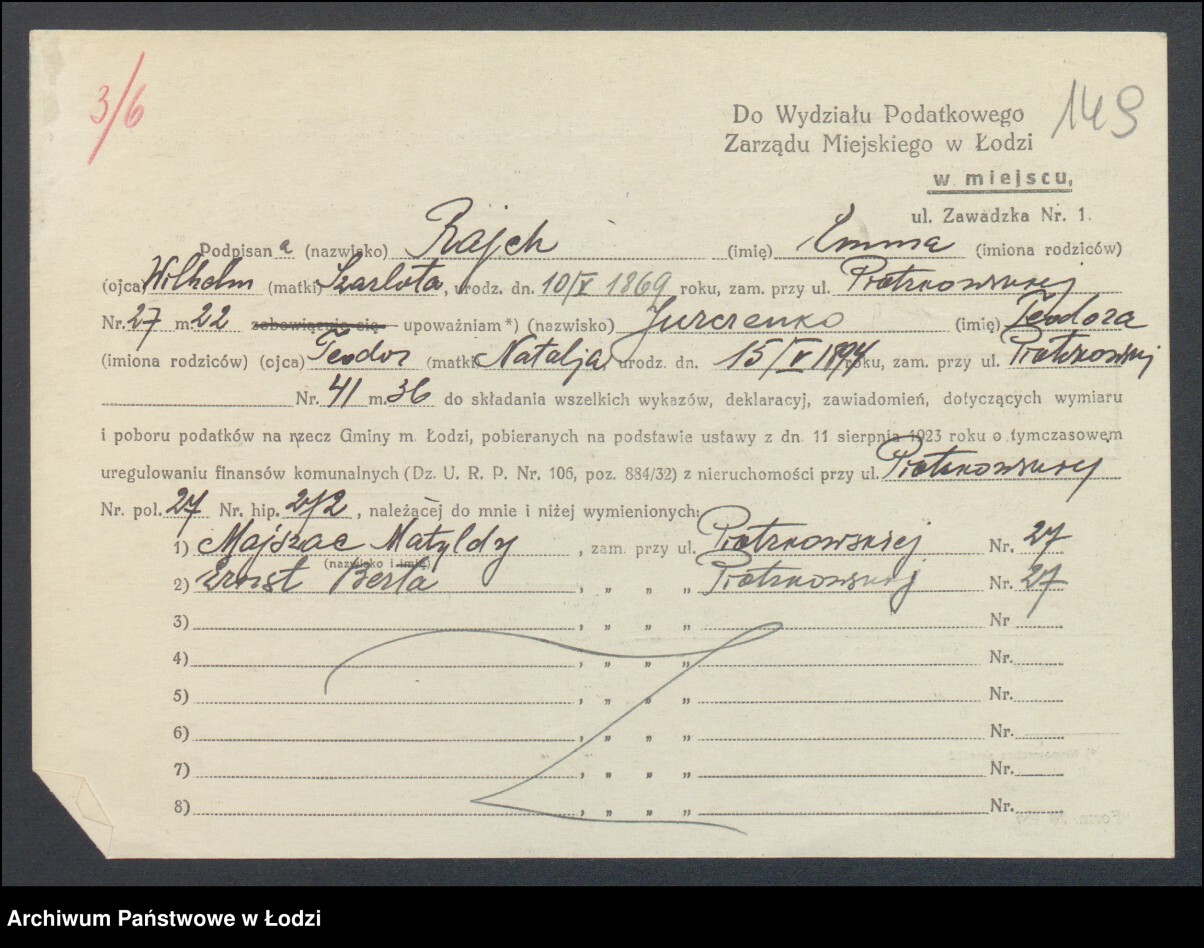 3/6
149
Do Wydziału Podatkowego
Zarządu Miejskiego w Łodzi
w miejscu,
ul. Zawadzka Nr. 1.
Podpisan a (nazwisko) Rajch (imię) Emma (imiona rodziców)
(ojca) Wilhelm (matki) Szarlota, urodz. dn. 10/V 1869 roku, zam. przy ul. Piotrkowskiej
Nr. 27 m. 22 zobowiązuję się upoważniam *) (nazwisko) Jurczenko (imię) Teodora
(imiona rodziców) (ojca) Teodor (matki) Natalja, urodz. dn. 15/V 1894 roku, zam. przy ul. Piotrkowskiej
Nr. 41 m. 36 do składania wszelkich wykazów, deklaracyj, zawiadomień, dotyczących wymiaru
i poboru podatków na rzecz Gminy m. Łodzi, pobieranych na podstawie ustawy z dn. 11 sierpnia 1923 roku o tymczasowem
uregulowaniu finansów komunalnych (Dz. U. R. P. Nr. 106, poz. 884/32) z nieruchomości przy ul. Piotrkowskiej
Nr. pol. 27 Nr. hip. 272, należącej do mnie i niżej wymienionych:
1) Majszac Matyldy, zam. przy ul. Piotrkowskiej Nr. 27
(nazwisko i imię)
2) Ernst Berta , „ „ „ Piotrkowskiej Nr. 27
3) , „ „ „ Nr
4) , „ „ „ Nr.
5) , „ „ „ Nr.
6) , „ „ „ Nr.
7) , „ „ „ Nr.
8) , „ „ „ Nr.
Archiwum Państwowe w Łodzi